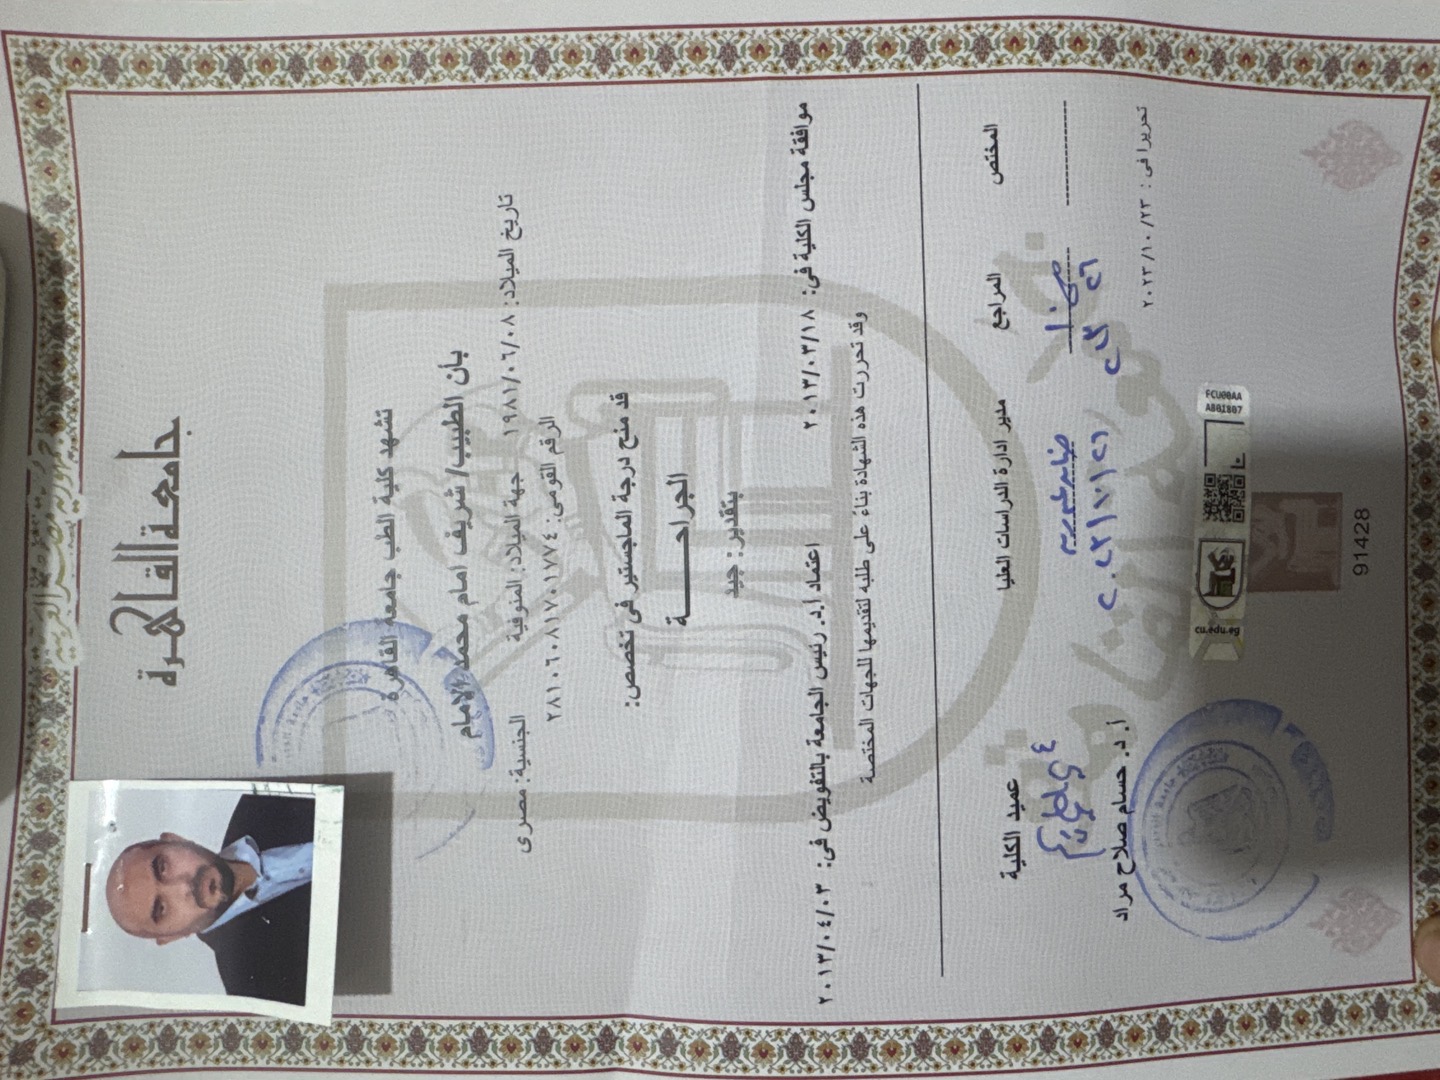 جمهورية مصر العربية
جامعة القاهرة
تشهد كلية الطب جامعة القاهرة
بأن الطبيب/ شريف امام محمد الامام
تاريخ الميلاد: ١٩٨١/٠٦/٠٨ جهة الميلاد: المنوفية الجنسية: مصرى
الرقم القومى: ٢٨١٠٦٠٨١٧٠١٧٧٤
قد منح درجة الماجستير فى تخصص:
الجراحـــــــة
بتقدير: جيد
موافقة مجلس الكلية فى: ٢٠١٣/٠٣/١٨ اعتماد أ.د. رئيس الجامعة بالتفويض فى: ٢٠١٣/٠٤/٠٣
وقد تحررت هذه الشهادة بناءً على طلبه لتقديمها للجهات المختصة
المختص المراجع مدير ادارة الدراسات العليا عميد الكلية
أ.د. حسام صلاح مراد
تحريرا فى: ٢٠٢٣/١٠/٢٣
FCU00AA
AB01807
cu.edu.eg
91428